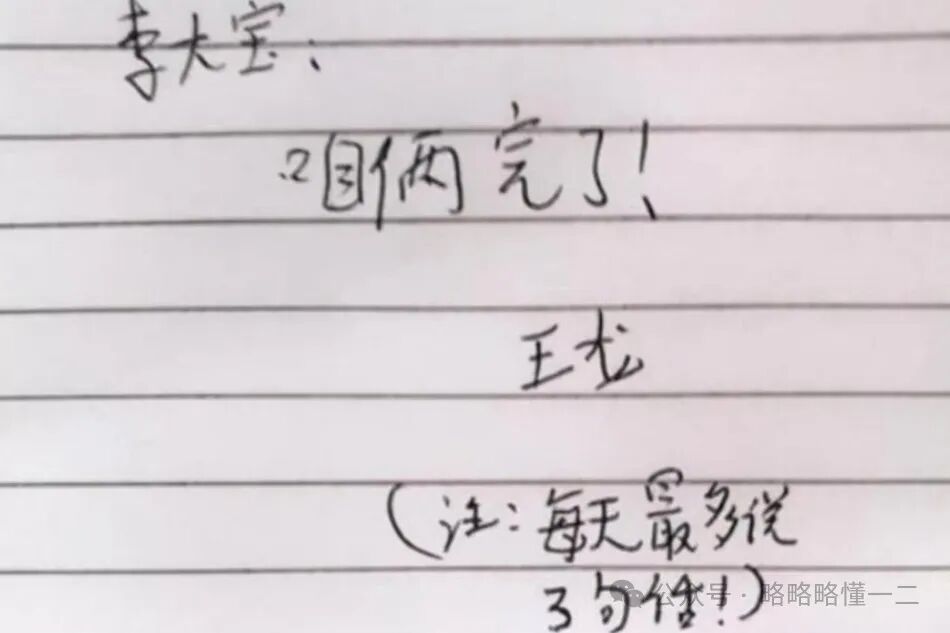 李大宝:
咱俩完了!
王龙
(注:每天最多说
3句话!)
公众号·略略略懂一二